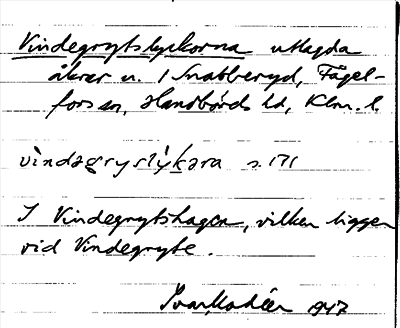 Vindegrytslyckorna utlagda
åkrar u. 1 Snabberyd, Fågel-
fors sn, Handbörds hd, Klm. l.
vìndəgryslỳkəra s. 171
I Vindegrytshagen, vilken ligger
vid Vindegryte.
Ivar Modéer 1947